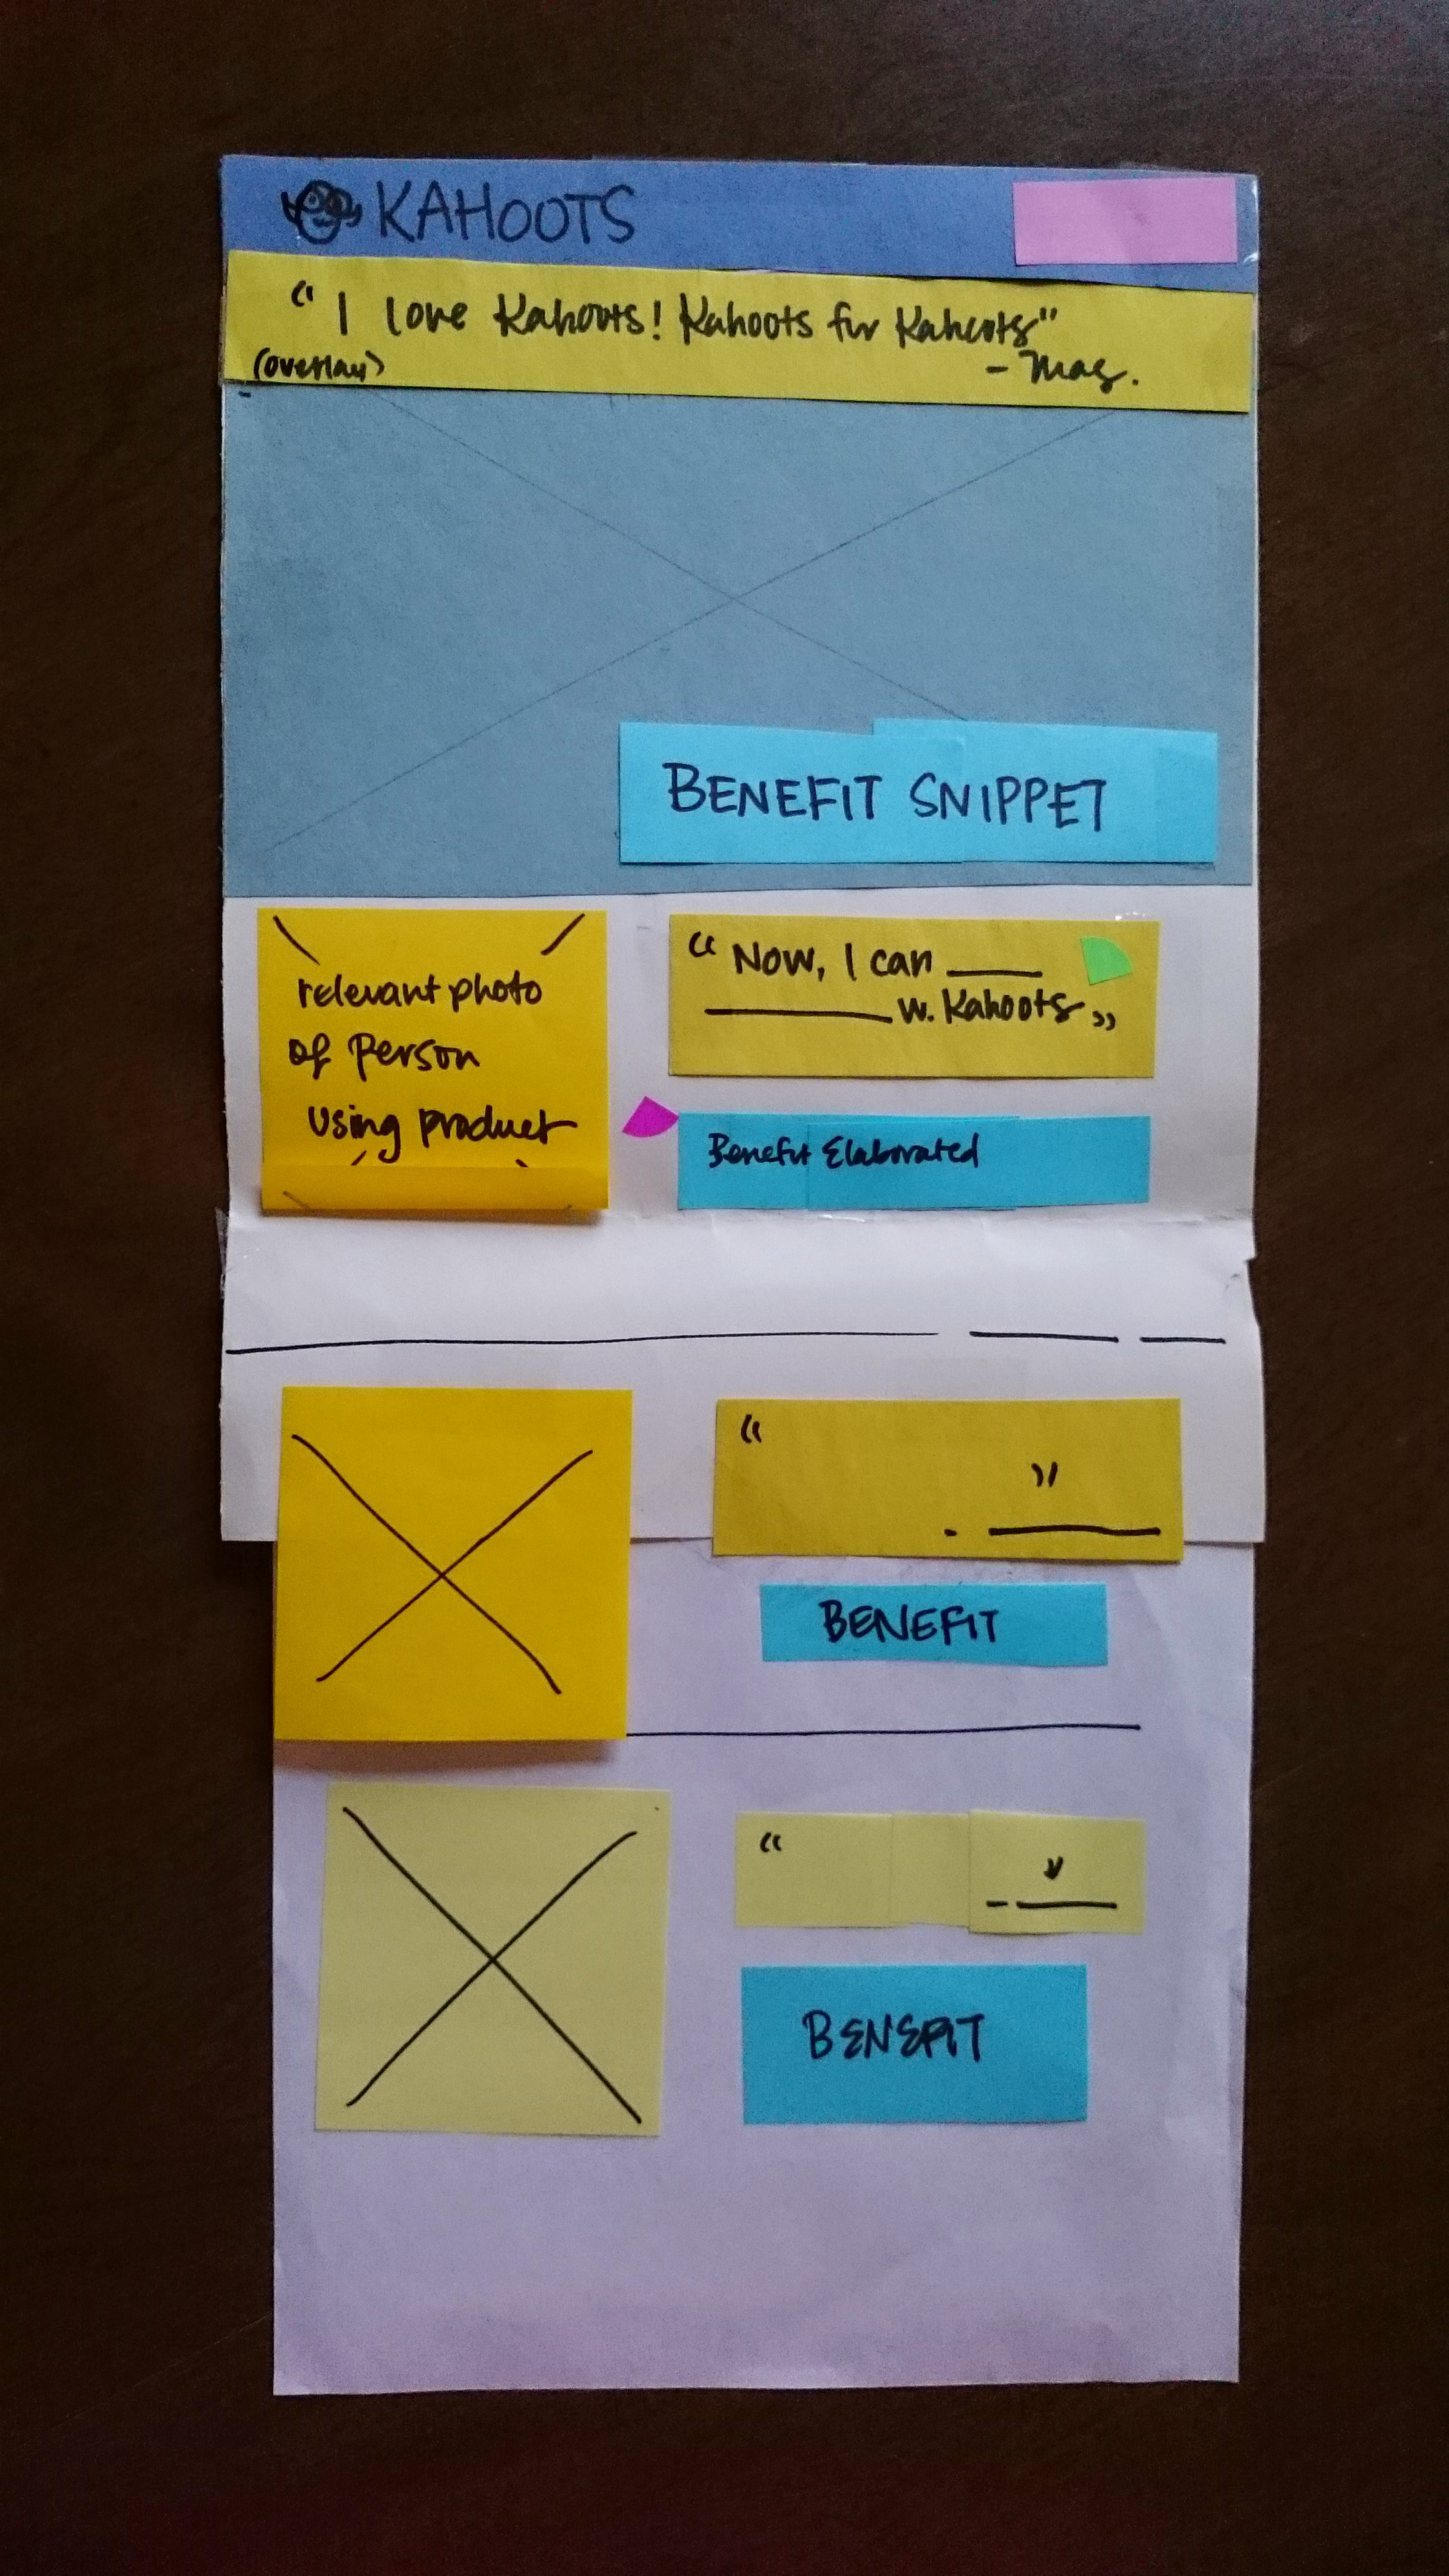 KAHOOTS
"I love Kahoots! Kahoots for Kahoots"
(overlay)
- Mag.
BENEFIT SNIPPET
relevant photo
of Person
using product
"Now, I can ____
________ w. Kahoots"
Benefit Elaborated
" "
- ____
BENEFIT
" "
- ____
BENEFIT